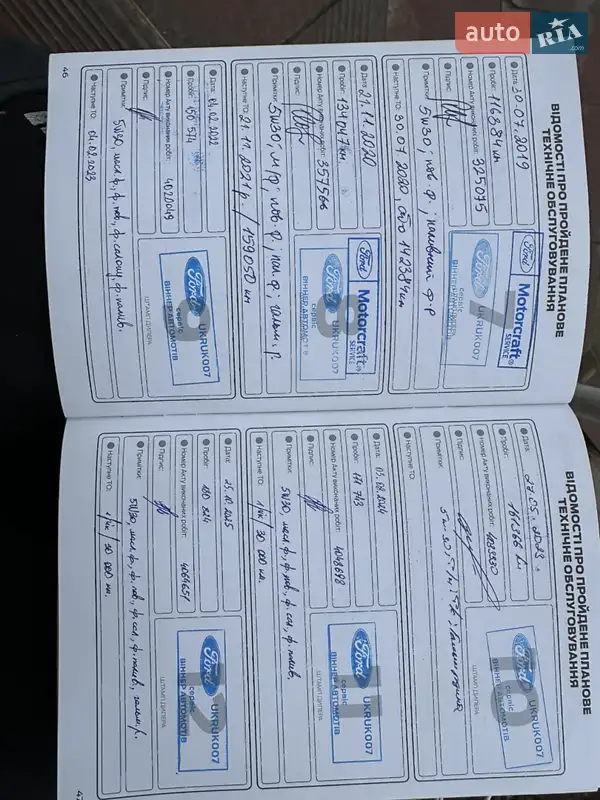 auto RIA .com
ВІДОМОСТІ ПРО ПРОЙДЕНЕ ПЛАНОВЕ
ТЕХНІЧНЕ ОБСЛУГОВУВАННЯ
Дата: 30.07.2019
Пробіг: 116384 км
Номер Акту виконаних робіт: 325075
Підпис:
Примітки: 5W30; пов. ф.; паливний ф-р
Наступне ТО: 30.07.2020, або 142384км
7
Ford Motorcraft®
SERVICE
Ford UKRUK007
сервіс
Дата: 21.11.2020
Пробіг: 134047 км
Номер Акту виконаних робіт: 357566
Підпис:
Примітки: 5W30; м/ф; пов. ф.; пал. ф; гальм. р.
Наступне ТО: 21.11.2021 р. / 159050 км
8
Ford Motorcraft®
SERVICE
Ford UKRUK007
сервіс
ВІННЕР АВТОМОТІВ
Дата: 04.02.2022
Пробіг: 150 574
Номер Акту виконаних робіт: 4020049
Підпис:
Примітки: 5W30, масл. ф, ф. пов, ф. салону, ф. палив.
Наступне ТО: 04.02.2023
9
Ford UKRUK007
сервіс
ВІННЕР АВТОМОТІВ
ШТАМП ДИЛЕРА
46
ВІДОМОСТІ ПРО ПРОЙДЕНЕ ПЛАНОВЕ
ТЕХНІЧНЕ ОБСЛУГОВУВАННЯ
Дата:
Пробіг:
Номер Акту виконаних робіт:
Підпис:
Примітки:
Наступне ТО:
10
Ford UKRUK007
сервіс
ВІННЕР АВТОМОТІВ
ШТАМП ДИЛЕРА
Дата: 05.08.2024
Пробіг: 171 743
Номер Акту виконаних робіт: 4048698
Підпис:
Примітки: 5W30, масл. ф, ф. пов, ф. сал, ф. палив.
Наступне ТО: 1 рік / 30 000 км.
11
Ford UKRUK007
сервіс
ВІННЕР АВТОМОТІВ
ШТАМП ДИЛЕРА
Дата: 25.10.2025
Пробіг: 180 824
Номер Акту виконаних робіт: 4064651
Підпис:
Примітки: 5W30, масл. ф, ф. пов, ф. сал, ф. палив, гальм. р.
Наступне ТО: 1 рік / 30 000 км.
12
Ford UKRUK007
сервіс
ВІННЕР АВТОМОТІВ
ШТАМП ДИЛЕРА
47